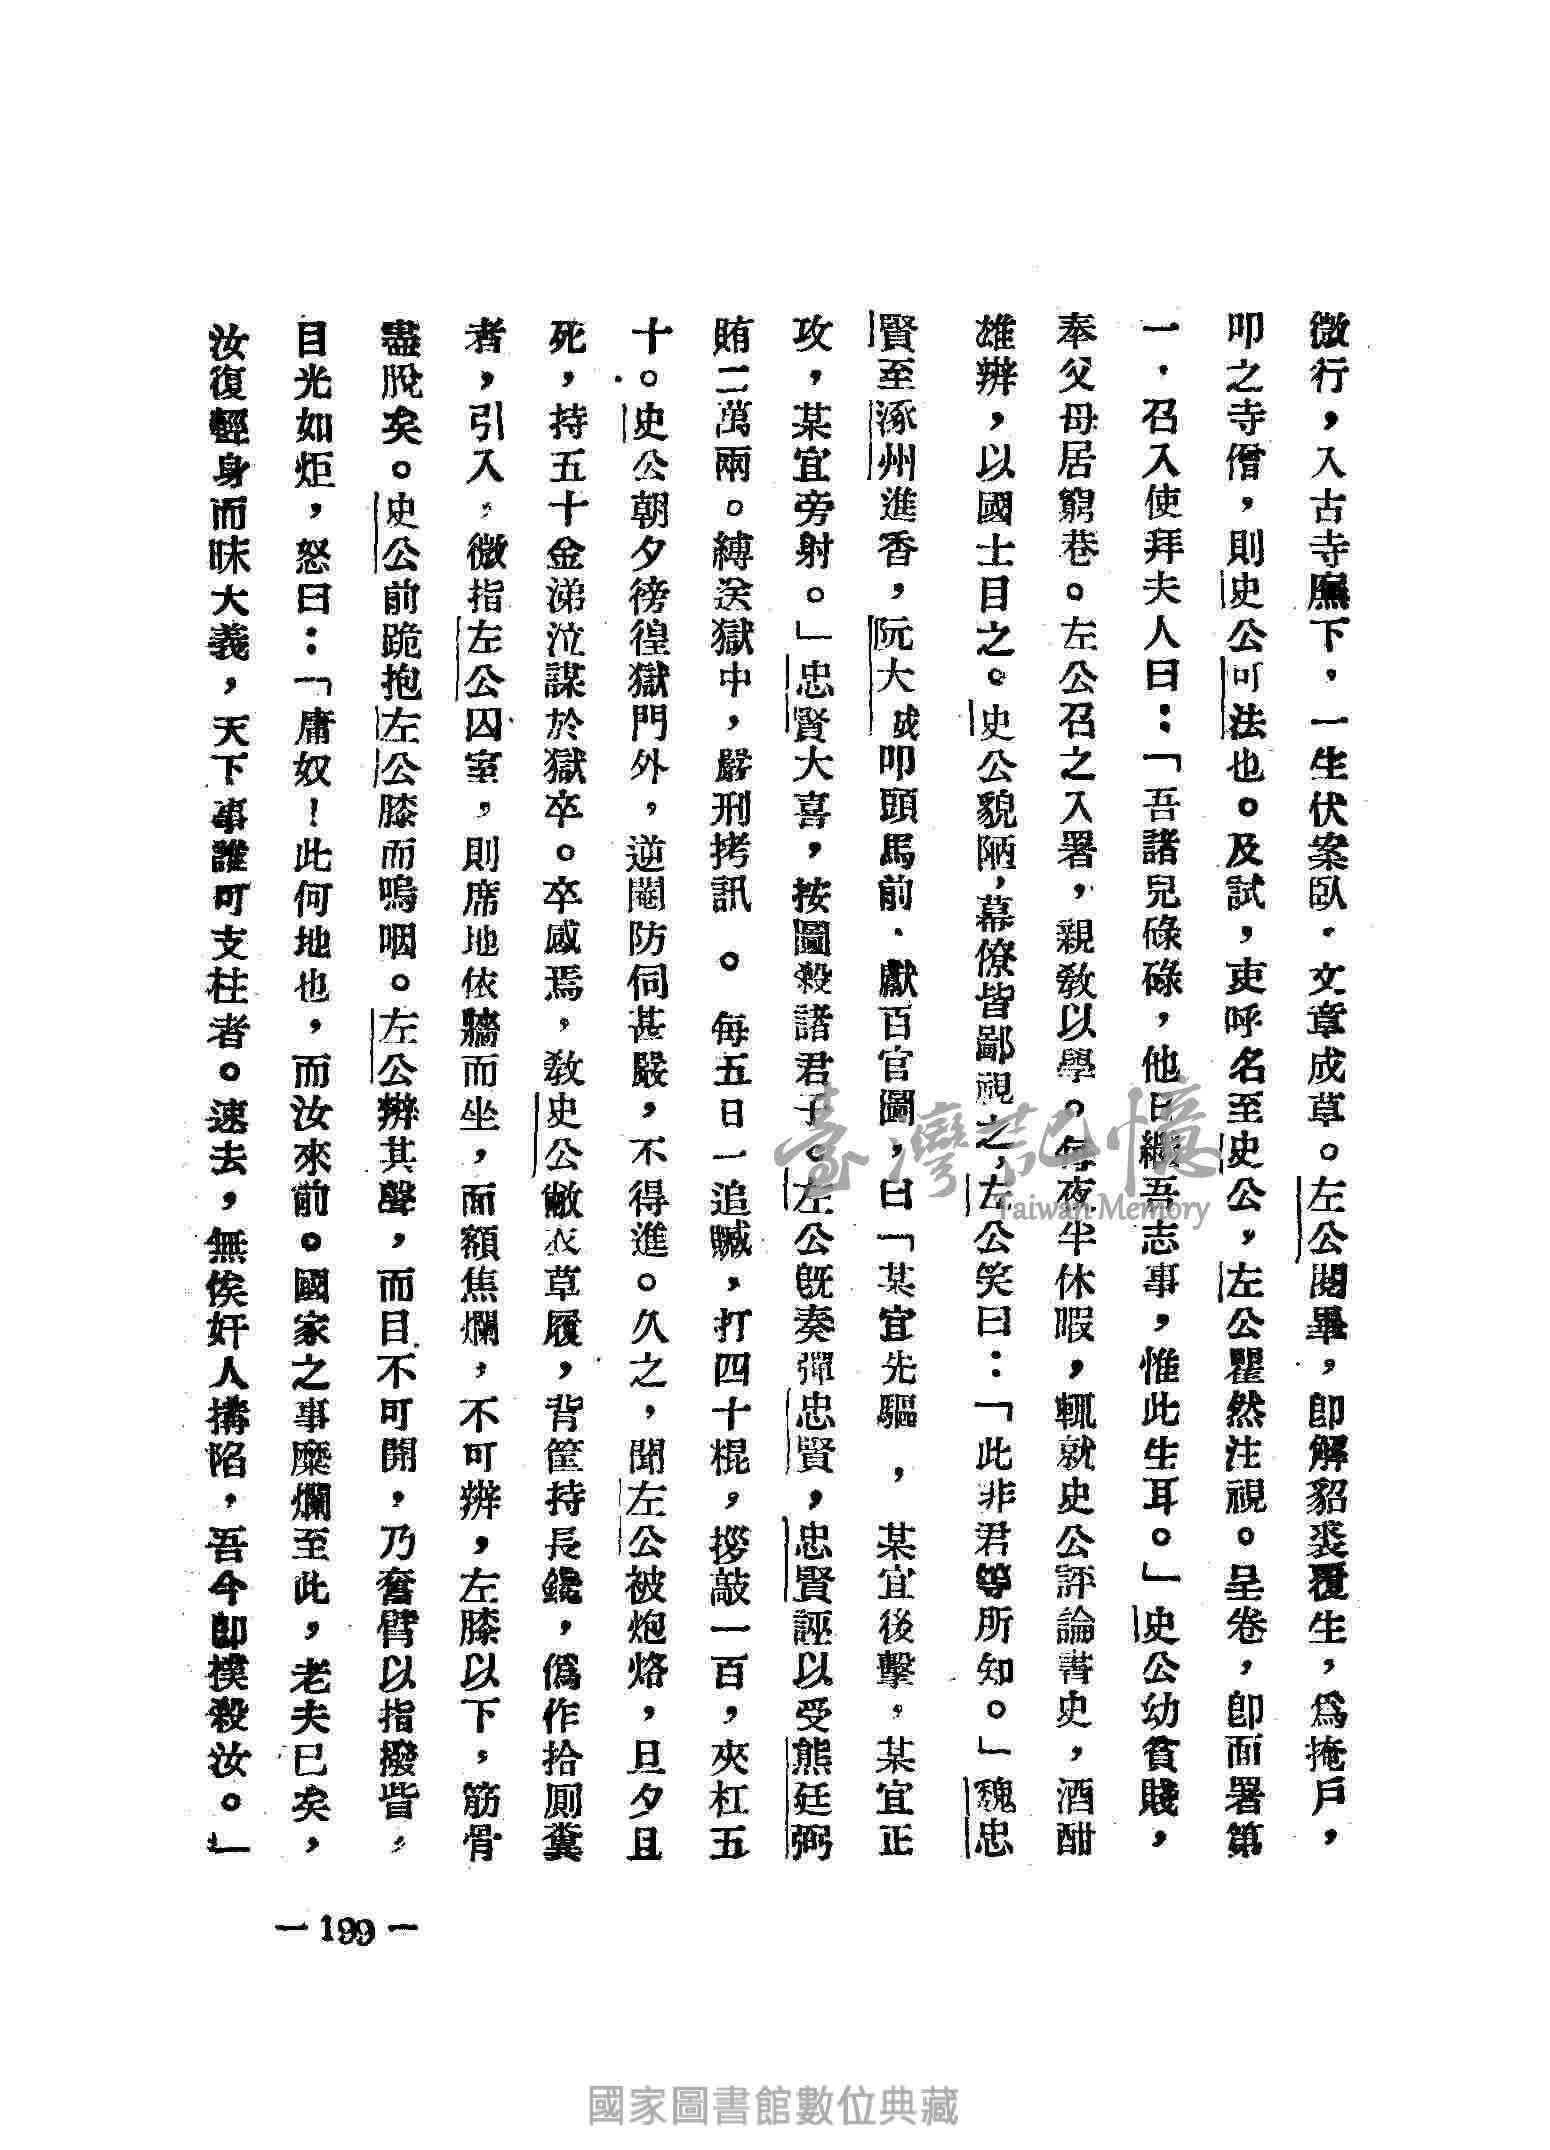 微行，入古寺廡下，一生伏案臥．文章成草。左公閱畢，卽解貂裘覆生，爲掩戶，
叩之寺僧，則史公可法也。及試，吏呼名至史公，左公瞿然注視。呈卷，卽面署第
一．召入使拜夫人曰：「吾諸兒碌碌，他日繼吾志事，惟此生耳。」史公幼貧賤，
奉父母居窮巷。左公召之入署，親教以學。每夜半休暇，輒就史公評論書史，酒酣
雄辨，以國士目之。史公貌陋，幕僚皆鄙視之，左公笑曰：「此非君等所知。」魏忠
賢至涿州進香，阮大鋮叩頭馬前．獻百官圖，曰「某宜先驅，某宜後擊，某宜正
攻，某宜旁射。」忠賢大喜，按圖殺諸君子。左公旣奏彈忠賢，忠賢誣以受熊廷弼
賄二萬兩。縛送獄中，嚴刑拷訊。每五日一追贓，打四十棍，拶敲一百，夾杠五
十。史公朝夕徬徨獄門外，逆閹防伺甚嚴，不得進。久之，聞左公被炮烙，旦夕且
死，持五十金涕泣謀於獄卒。卒感焉，敎史公敝衣草履，背筐持長鑱，僞作拾厠糞
者，引入，微指左公囚室，則席地依牆而坐，面額焦爛，不可辨，左膝以下，筋骨
盡脫矣。史公前跪抱左公膝而嗚咽。左公辨其聲，而目不可開，乃奮臂以指撥眥，
目光如炬，怒曰：「庸奴！此何地也，而汝來前。國家之事糜爛至此，老夫已矣，
汝復輕身而昧大義，天下事誰可支柱者。速去，無俟奸人搆陷，吾今卽撲殺汝。」
— 199 —
臺灣記憶
Taiwan Memory
國家圖書館數位典藏